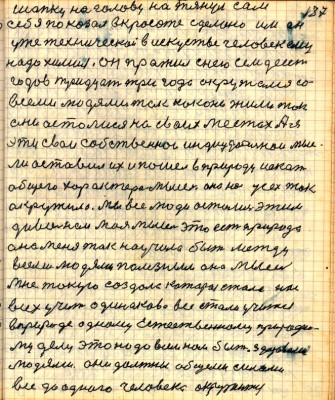 шапку на голову натянул сам 137
себя показал в красоте сделано им он
уже технической в искустве человек ему
надо химия. он правил нею семдесят
годов тридцат три года окружался со
всеми людями так как они жили так
они астолися на своих местах А я
эти свои собственное индивудальной мыс
ли оставил их и пошел в природу искат
общего характера мысел она нас усех так
окружила. Мы все люди остались этим
дивом на моя мысел это ест природа
она меня так научила быт между
всеми людями полезным она мысел
мне токую создала катарая стала им
всех учит одинаково все стали учится
в природе одному Естественному природно
му делу это надо всем нам быт здоровыми
людями. они должны общими силами
все до одного человека окружит